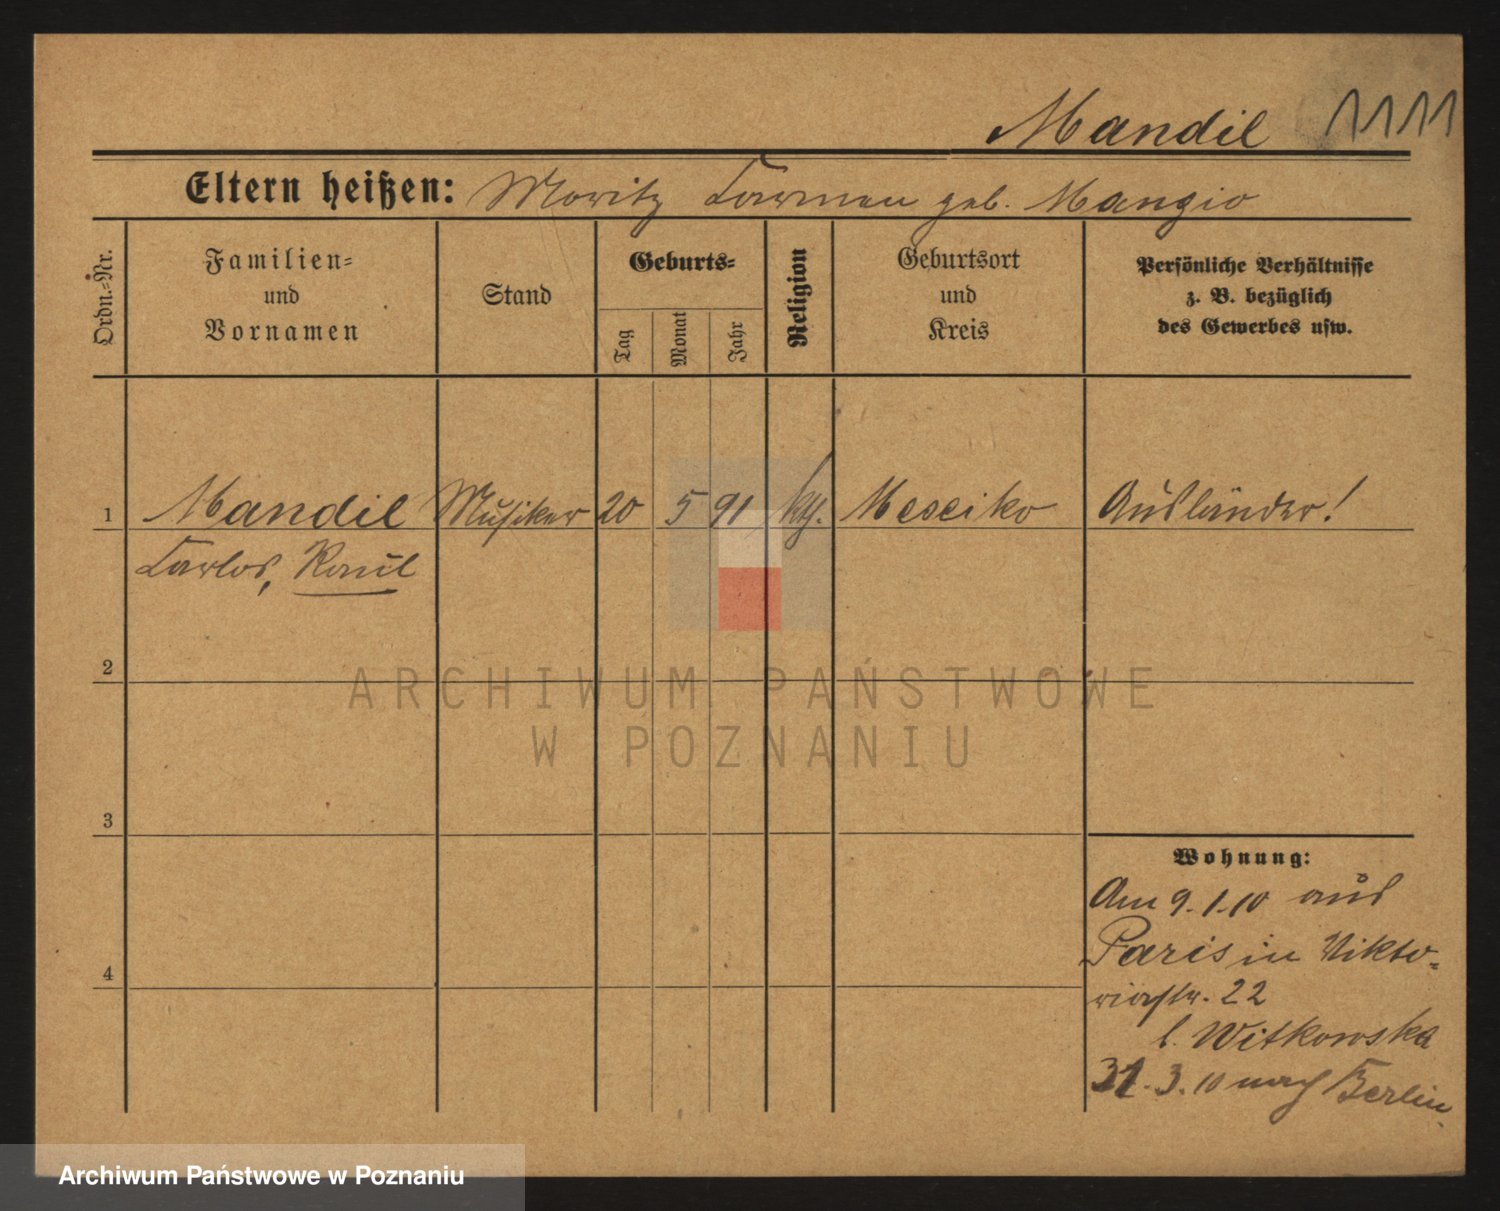 Mandil 1111
Eltern heißen: Moritz Carmen geb. Mangio
Ordn.=Nr.
Familien=
und
Vornamen
Stand
Geburts=
Tag
Monat
Jahr
Religion
Geburtsort
und
Kreis
Persönliche Verhältnisse
z. B. bezüglich
des Gewerbes usw.
1 Mandil Musiker 20 5 91 kth. Mexiko Ausländer!
Carlos, Raul
2
ARCHIWUM PAŃSTWOWE
W POZNANIU
3
Wohnung:
Am 9.1.10 aus
Paris in Vikto-
4
riastr. 22
b. Witkowska
31.3.10 nach Berlin
Archiwum Państwowe w Poznaniu